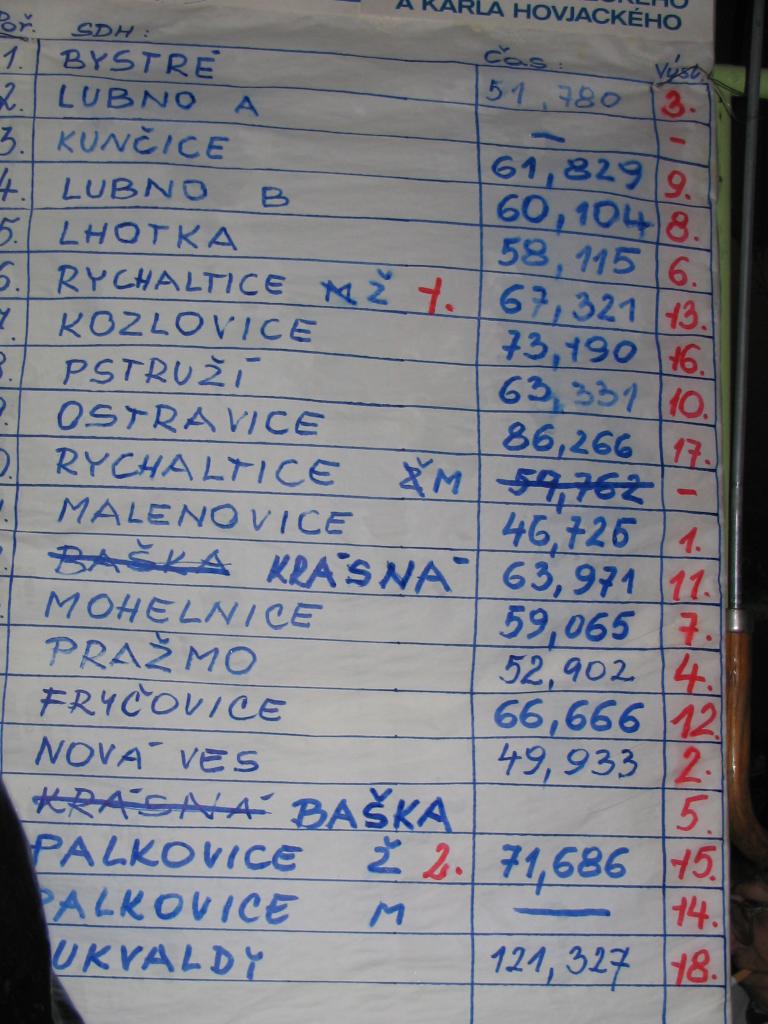 A KARLA HOVJACKÉHO
Poř. SDH: Čas: Výsl.
1. BYSTRÉ 51,780 3.
2. LUBNO A – –
3. KUNČICE 61,829 9.
4. LUBNO B 60,104 8.
5. LHOTKA 58,115 6.
6. RYCHALTICE M Ž 1. 67,321 13.
7. KOZLOVICE 73,190 16.
PSTRUŽÍ 63,331 10.
OSTRAVICE 86,266 17.
RYCHALTICE Ž M 59,762 –
MALENOVICE 46,725 1.
BAŠKA KRÁSNÁ 63,971 11.
MOHELNICE 59,065 7.
PRAŽMO 52,902 4.
FRYČOVICE 66,666 12.
NOVÁ VES 49,933 2.
KRÁSNÁ BAŠKA 5.
PALKOVICE Ž 2. 71,686 15.
PALKOVICE M — 14.
UKVALDY 121,327 18.